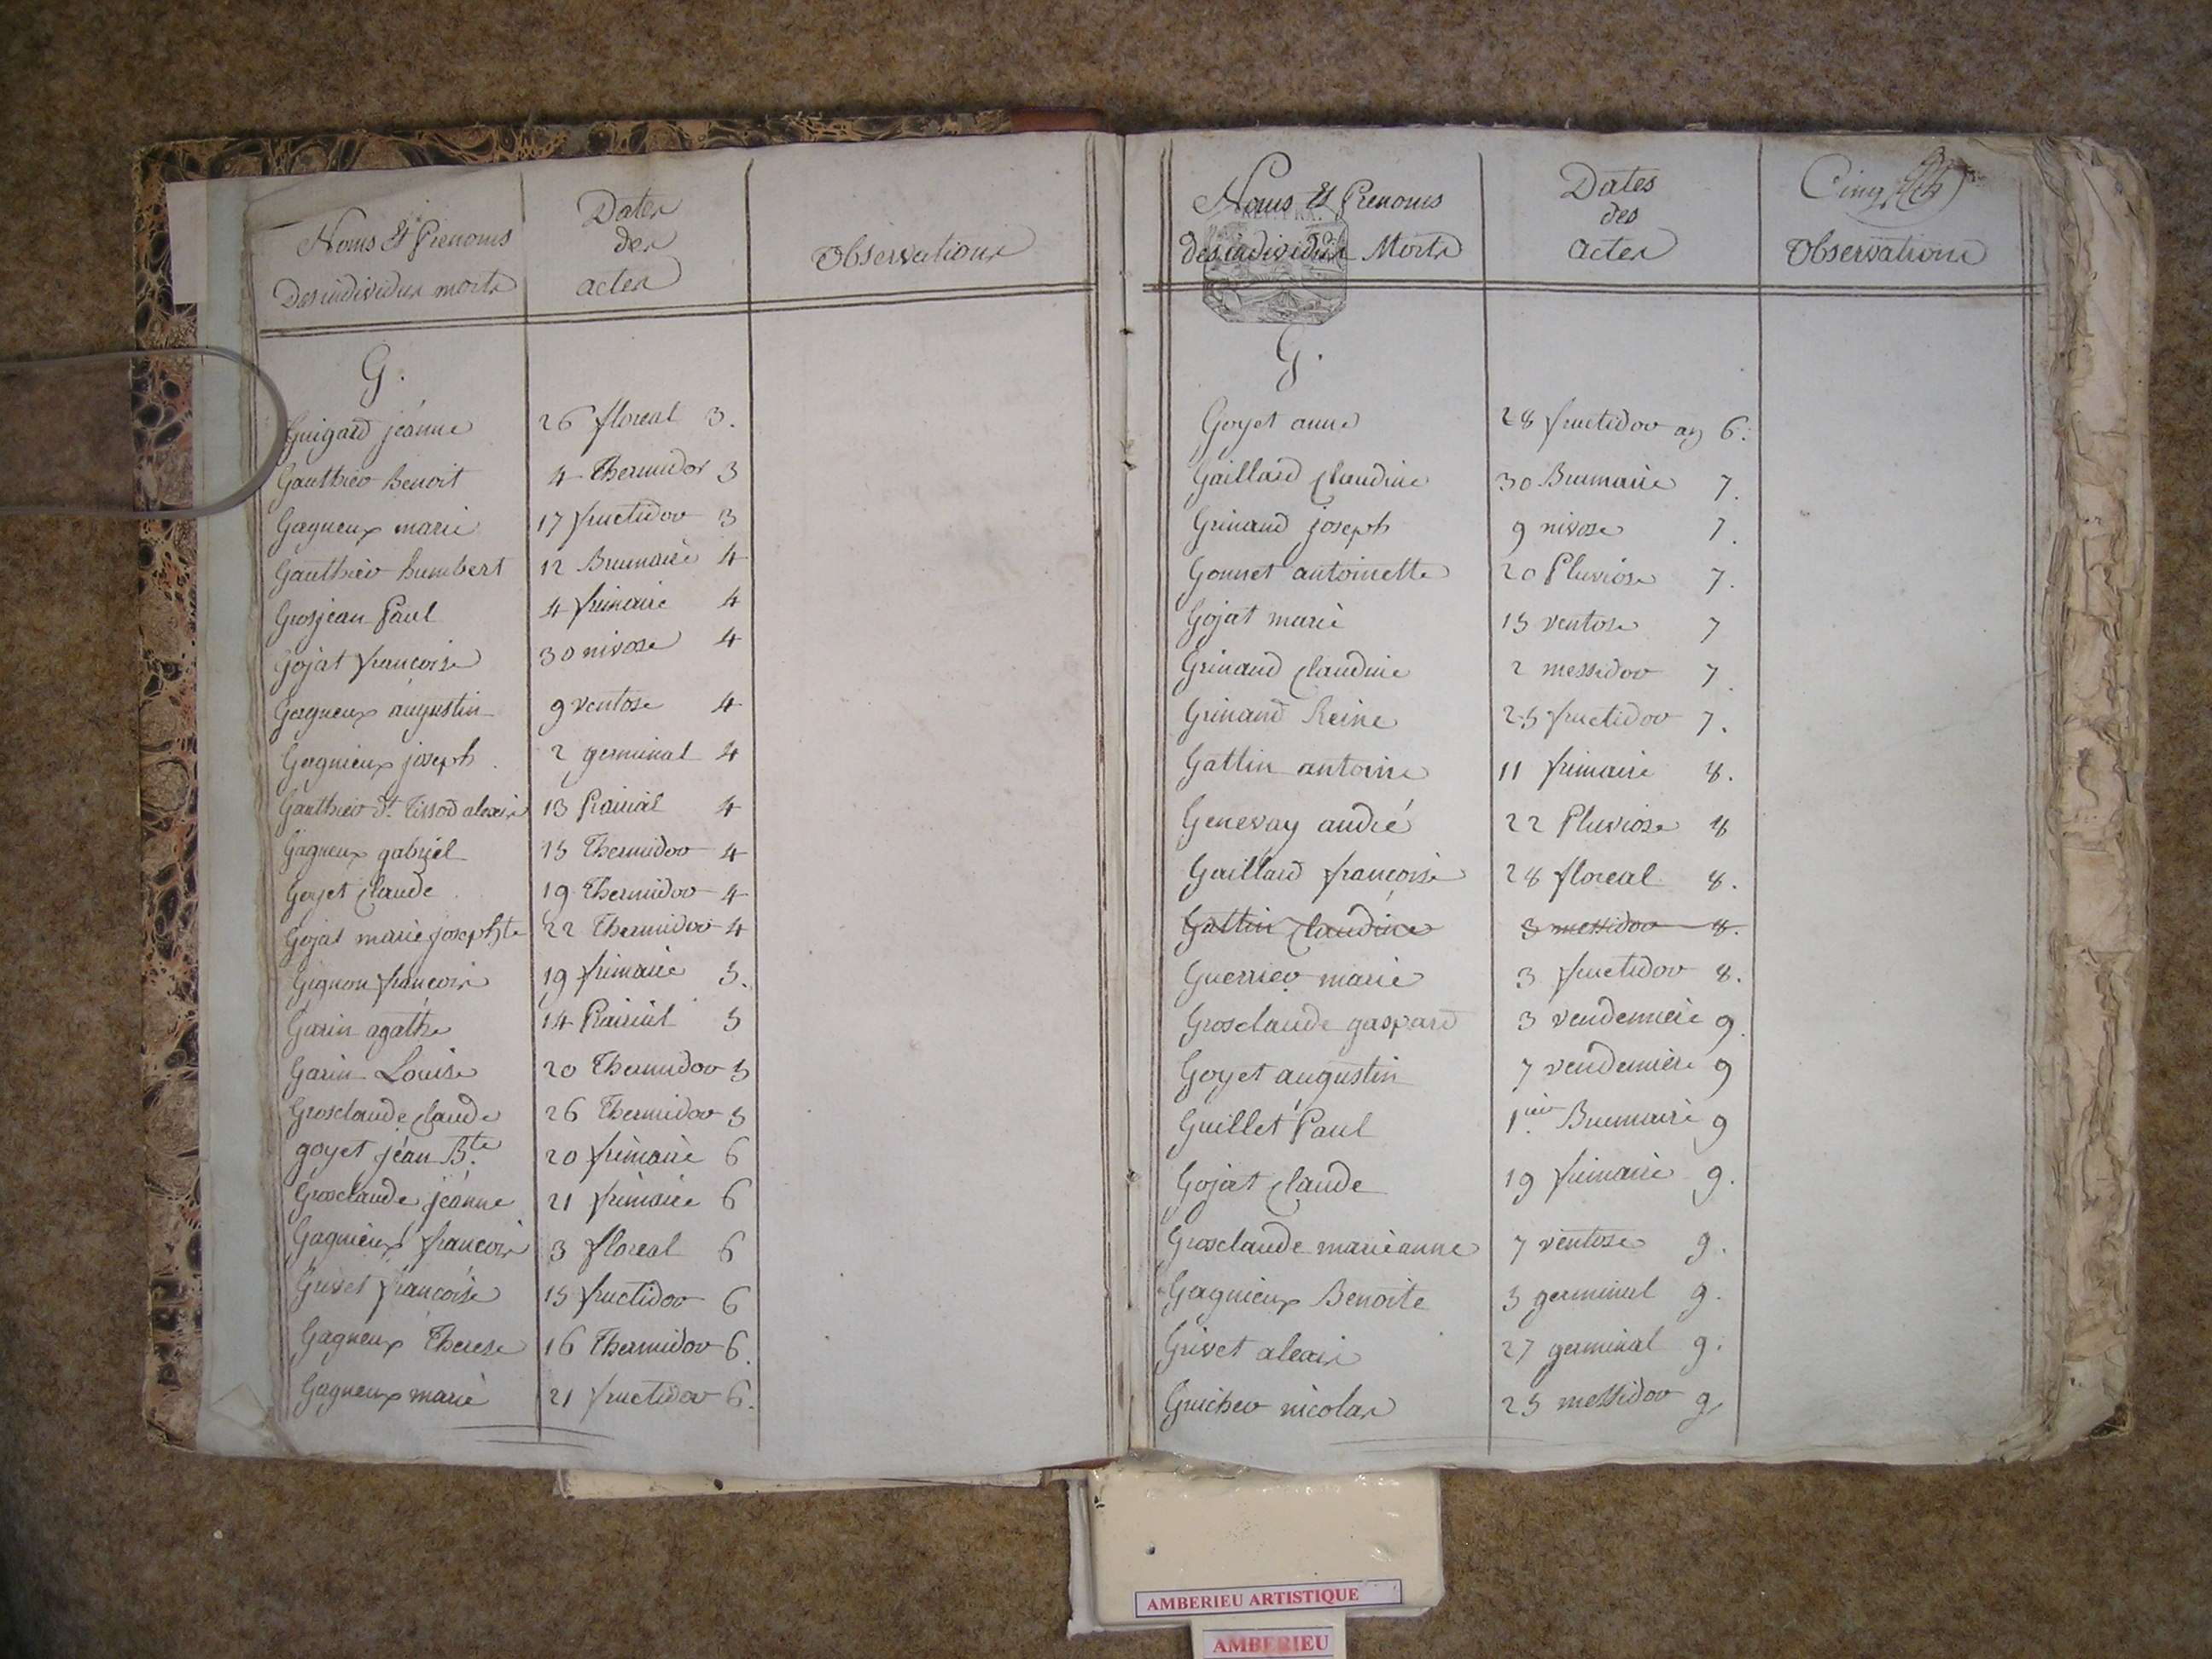 Noms Et Prenoms
Des individus morts
Dates
des
actes
Observations
G.
Guigard jeanne 26 floreal 3.
Gauthier benoit 4 Thermidor 3
Gagneux marie 17 fructidor 3
Gauthier humbert 12 Brumaire 4
Grosjean Paul 4 frimaire 4
Gojat francoise 30 nivose 4
Gagneux augustin 9 ventose 4
Gagnieux joseph 2 germinal 4
Gauthier dt. Tissod alexis 13 Prairial 4
Gagneux gabriel 15 Thermidor 4
Goyet Claude 19 Thermidor 4
Gojat marie josephte 22 Thermidor 4
Gignon francois 19 frimaire 5.
Garin agathe 14 Prairial 5
Garin Louise 20 Thermidor 5
Grosclaude Claude 26 Thermidor 5
goyet jean Bte. 20 frimaire 6
Grosclaude jeanne 21 frimaire 6
Gagnieux francois 3 floreal 6
Grivet francoise 15 fructidor 6
Gagneux Therese 16 Thermidor 6.
Gagneux marie 21 fructidor 6.
Noms Et Prenoms
des individus Morts
Dates
des
actes
Cinq
Observations
G.
Goyet anne 28 fructidor an 6.
Gaillard Claudine 30 Brumaire 7.
Grinand joseph 9 nivose 7.
Gonnet antoinette 20 Pluviose 7.
Gojat marie 15 ventose 7
Grinand Claudine 2 messidor 7.
Grinand Reine 25 fructidor 7.
Gattin antoine 11 frimaire 8.
Genevay andré 22 Pluviose 8
Gaillard francoise 28 floreal 8.
Gattin Claudine 3 messidor 8.
Guerrier marie 3 fructidor 8.
Grosclaude gaspard 3 vendemiere 9
Goyet augustin 7 vendemiere 9
Guillet Paul 1.ier Brumaire 9
Gojat Claude 19 frimaire 9.
Grosclaude marieanne 7 ventose 9.
Gagnieux Benoite 3 germinal 9.
Grivet alexis 27 germinal 9.
Guicher nicolas 25 messidor 9
AMBERIEU ARTISTIQUE
AMBERIEU